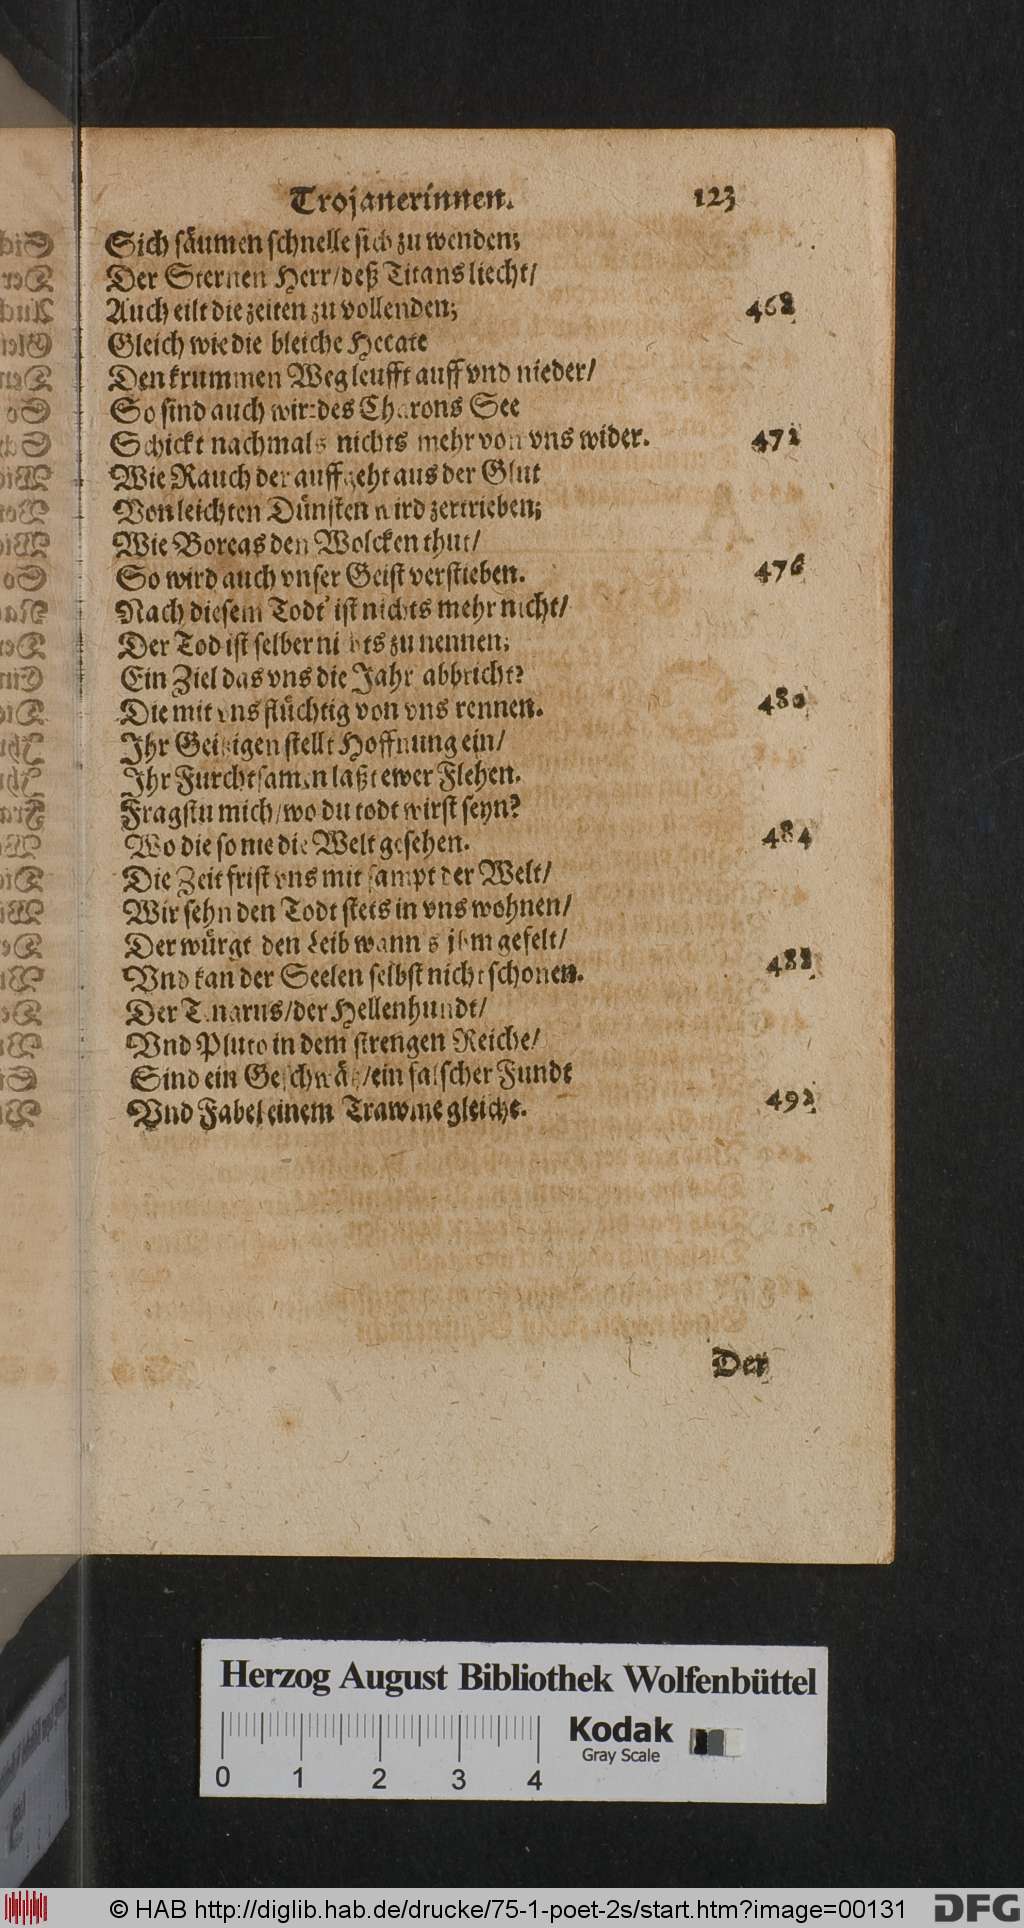 Trojanerinnen. 123
Sich säumen schnelle sich zu wenden;
Der Sternen Herr/deß Titans liecht/
Auch eilt die zeiten zu vollenden; 468
Gleich wie die bleiche Hecate
Den krummen Weg leufft auff vnd nieder/
So sind auch wir: des Charons See
Schickt nachmals nichts mehr von vns wider. 472
Wie Rauch der auffgeht aus der Glut
Von leichten Dünsten wird zertrieben;
Wie Boreas den Wolcken thut/
So wird auch vnser Geist verstieben. 476
Nach diesem Todt' ist nichts mehr nicht/
Der Tod ist selber nichts zu nennen;
Ein Ziel das vns die Jahr abbricht?
Die mit vns flüchtig von vns rennen. 480
Jhr Geitzigen stellt Hoffnung ein/
Jhr Furchtsamen laßt ewer Flehen.
Fragstu mich/wo du todt wirst seyn?
Wo die so nie die Welt gesehen. 484
Die Zeit frist vns mit sampt der Welt/
Wir sehn den Todt stets in vns wohnen/
Der würgt den Leib wann es jhm gefelt/
Vnd kan der Seelen selbst nicht schonen. 488
Der Tenarus/der Hellenhundt/
Vnd Pluto in dem strengen Reiche/
Sind ein Geschwätz/ein falscher Fundt
Vnd Fabel einem Trawme gleiche. 492
Der
Herzog August Bibliothek Wolfenbüttel
Kodak
Gray Scale
0 1 2 3 4
© HAB http://diglib.hab.de/drucke/75-1-poet-2s/start.htm?image=00131
DFG